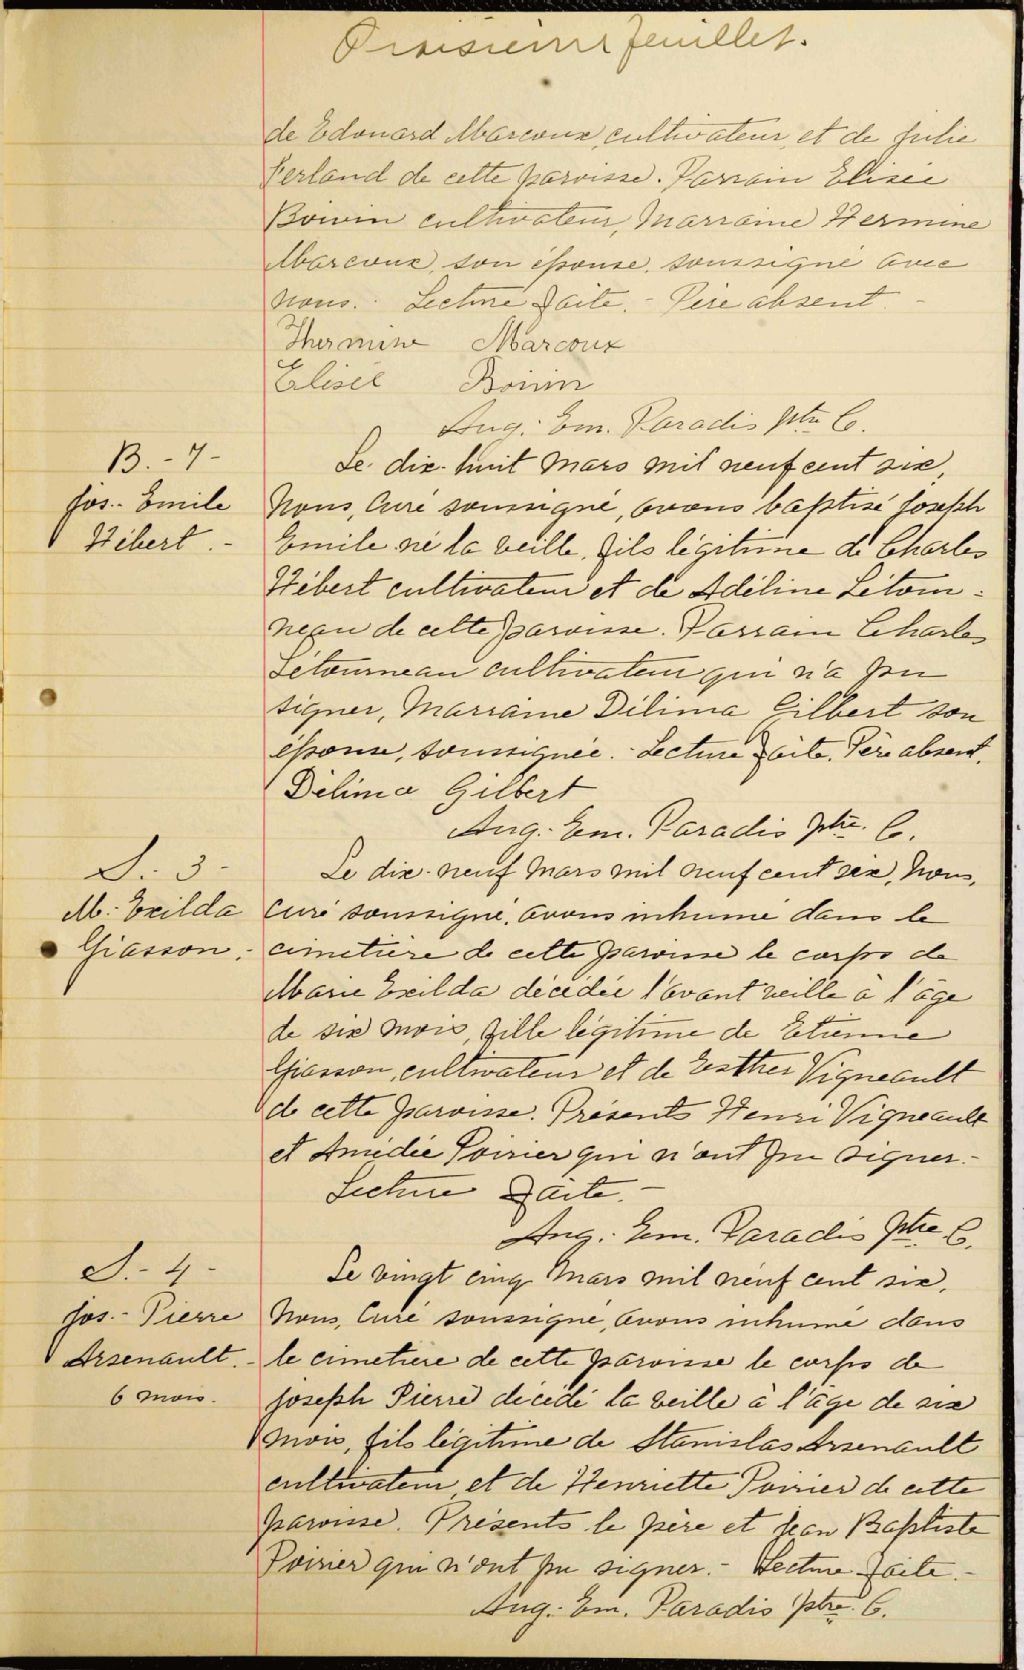 Troisième feuillet.
de Edouard Marcoux, cultivateur, et de julie
Ferland de cette paroisse. Parrain Elisée
Boivin cultivateur, Marraine Hermine
Marcoux, son épouse, soussigné avec
nous. Lecture faite. - Père absent -
Thermine Marcoux
Elisée Boivin
Aug. Em. Paradis Ptre C.
B. - 7 -
jos. - Emile
Hébert. -
Le dix-huit Mars mil neuf cent six,
Nous, Curé soussigné, avons baptisé joseph
Emile né la veille, fils légitime de Charles
Hébert cultivateur et de Adéline Létour-
neau de cette paroisse. Parrain Charles
Létourneau cultivateur qui n'a pu
signer, Marraine Délima Gilbert son
épouse, soussignée. - Lecture faite. Père absent.
Délima Gilbert
Aug. - Em. Paradis ptre. C.
S. 3 -
M. - Exilda
Giasson. -
Le dix-neuf Mars mil neuf cent six, Nous,
Curé soussigné, avons inhumé dans le
cimetière de cette paroisse le corps de
Marie Exilda décédée l'avant veille à l'âge
de six mois, fille légitime de Etienne
Giasson, cultivateur et de Esther Vigneault
de cette paroisse. Présents Henri Vigneault
et Amédée Poirier qui n'ont pu signer. -
Lecture faite. -
Aug. - Em. Paradis Ptre C.
S. - 4 -
jos. - Pierre
Arsenault. -
6 mois.
Le vingt cinq Mars mil neuf cent six,
Nous, Curé soussigné, avons inhumé dans
le cimetière de cette paroisse le corps de
joseph Pierre décédé la veille à l'âge de six
mois, fils légitime de Stanislas Arsenault
cultivateur, et de Henriette Poirier de cette
paroisse. Présents le père et jean Baptiste
Poirier qui n'ont pu signer. - Lecture faite. -
Aug. - Em. Paradis ptre. C.